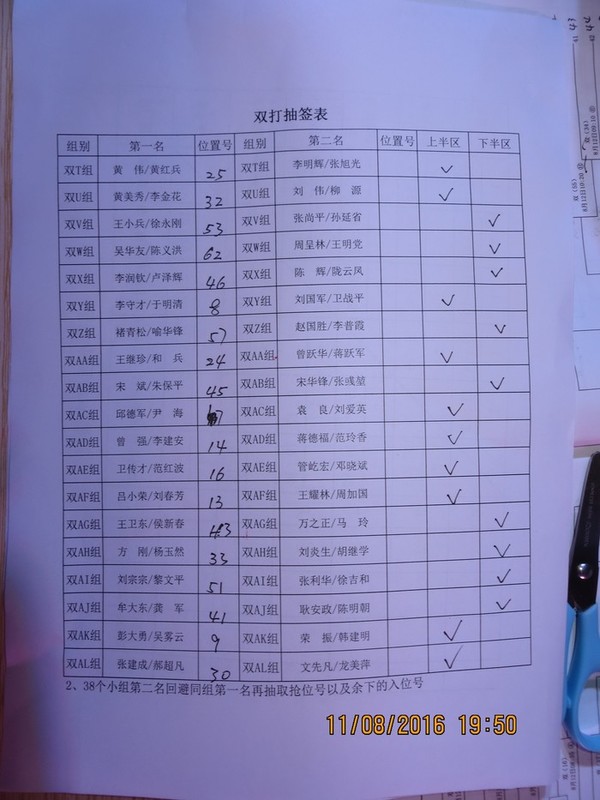 双打抽签表
组别 第一名 位置号 组别 第二名 位置号 上半区 下半区
双T组 黄 伟/黄红兵 25 双T组 李明辉/张旭光 ✓
双U组 黄美秀/李金花 32 双U组 刘 伟/柳 源 ✓
双V组 王小兵/徐永刚 53 双V组 张尚平/孙延省 ✓
双W组 吴华友/陈义洪 62 双W组 周呈林/王明党 ✓
双X组 李润钦/卢泽辉 46 双X组 陈 辉/陇云凤 ✓
双Y组 李守才/于明清 8 双Y组 刘国军/卫战平 ✓
双Z组 褚青松/喻华锋 57 双Z组 赵国胜/李普霞 ✓
双AA组 王继珍/和 兵 24 双AA组 曾跃华/蒋跃军 ✓
双AB组 宋 斌/朱保平 45 双AB组 宋华锋/张彧堃 ✓
双AC组 邱德军/尹 海 双AC组 袁 良/刘爱英 ✓
双AD组 曾 强/李建安 14 双AD组 蒋德福/范玲香 ✓
双AE组 卫传才/范红波 16 双AE组 管屹宏/邓晓斌 ✓
双AF组 吕小荣/刘春芳 13 双AF组 王耀林/周加国 ✓
双AG组 王卫东/侯新春 43 双AG组 万之正/马 玲 ✓
双AH组 方 刚/杨玉然 33 双AH组 刘炎生/胡继学 ✓
双AI组 刘宗宗/黎文平 51 双AI组 张利华/徐吉和 ✓
双AJ组 牟大东/龚 军 41 双AJ组 耿安政/陈明朝 ✓
双AK组 彭大勇/吴雾云 9 双AK组 荣 振/韩建明 ✓
双AL组 张建成/郝超凡 30 双AL组 文先凡/龙美萍 ✓
2、38个小组第二名回避同组第一名再抽取抢位号以及余下的入位号
11/08/2016 19:50